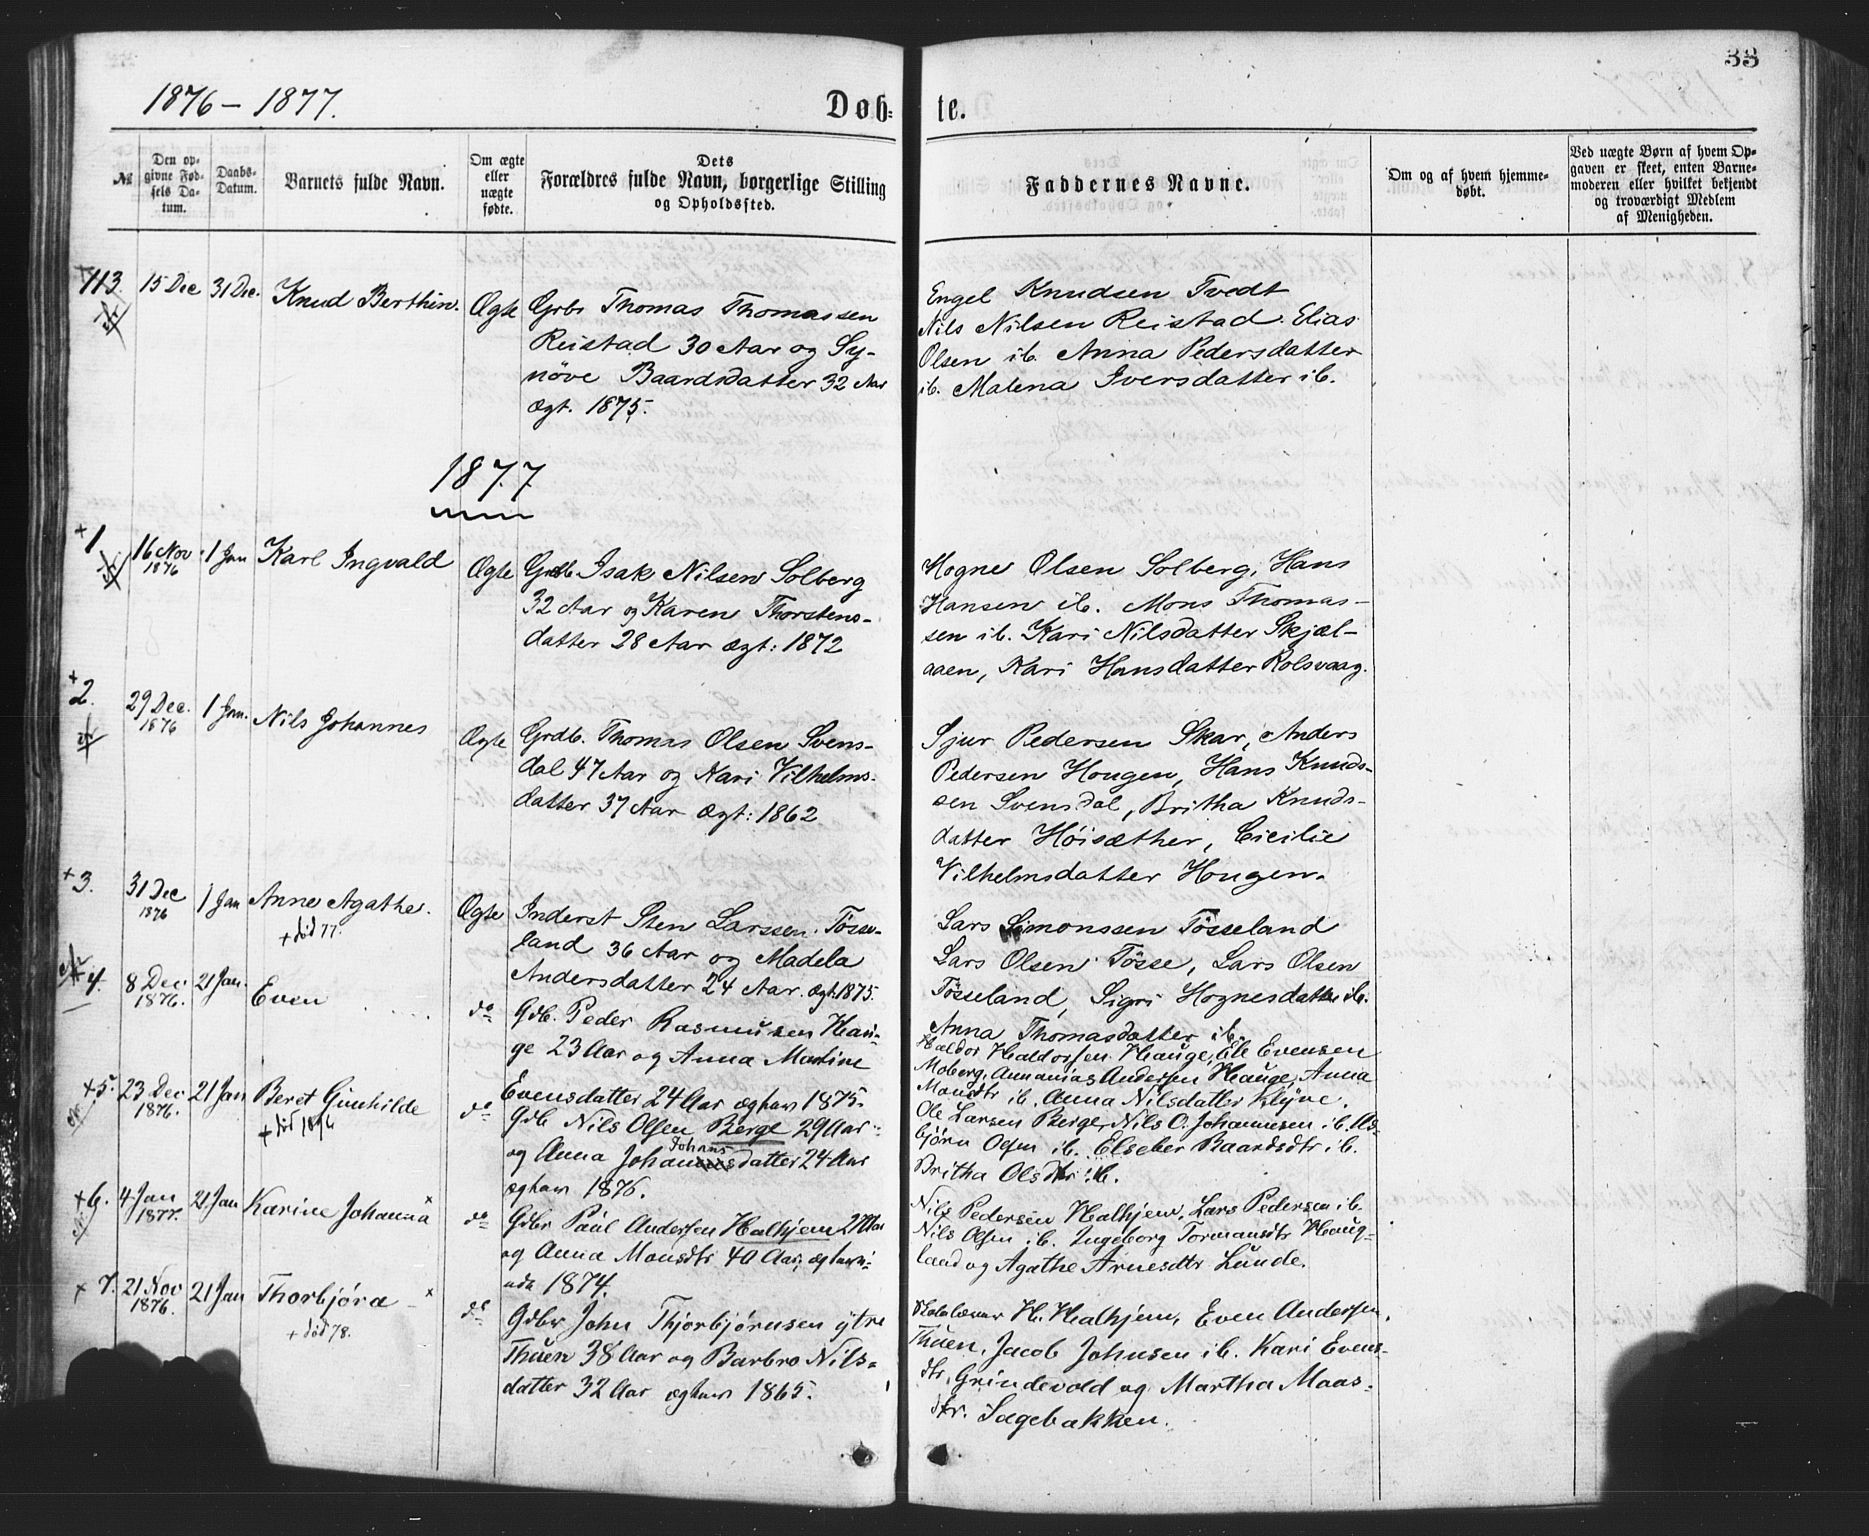 33
1876 – 1877.
Døb-
te.
№
Den op-
givne Fød-
sels Da-
tum.
Daabs-
Datum.
Barnets fulde Navn.
Om ægte
eller
uægte
fødte.
Dets
Forældres fulde Navn, borgerlige Stilling
og Opholdssted.
Faddernes Navne.
Om og af hvem hjemme-
døbt.
Ved uægte Børn af hvem Op-
gaven er skeet, enten Barne-
moderen eller hvilket bekjendt
og troværdigt Medlem
af Menigheden.
113.
15 Dec
31 Dec.
Knud Berthin.
Ægte
Grbr Thomas Thomassen
Reistad 30 Aar og Sy-
növe Baardsdatter 32 Aar
Ægt. 1875.
Engel Knudsen Tvedt
Nils Nilsen Reistad. Elias
Olsen ib. Anna Pedersdatter
ib. Malena Iversdatter ib.
1877
+1
16 Nov
1876
1 Jan
Karl Ingvald
Ægte
Grdb. Isak Nilsen Solberg
32 Aar og Karen Thorstens-
datter 28 Aar ægt: 1872
Mogne Olsen Solberg, Hans
Hansen ib. Mons Thomas-
sen ib. Kari Nilsdatter Skjæl-
aaen, Kari Hansdatter Rolsvaag.
+2.
29 Dec.
1876
1 Jan.
Nils Johannes
Ægte
Grdb. Thomas Olsen Svens-
dal 47 Aar og Kari Vilhelms-
datter 37 Aar Ægt: 1862
Sjur Pedersen Skar, Anders
Pedersen Hougen, Hans Knuds-
sen Svensdal, Britha Knuds-
datter Höisæther, Cicilie
Vilhelmsdatter Hougen.
+3.
31 Dec
1876
1 Jan
Anne Agathe.
+ död 77.
Ægte
Inderst Sten Larssen Tösse-
land 36 Aar og Madela
Andersdatter 24 Aar. Ægt. 1875.
Lars Simonssen Tösseland
Lars Olsen Tösse, Lars Olsen
Tösseland, Sigri Hognesdatter ib.
Anna Thomasdatter ib.
4.
8 Dec
1876.
21 Jan.
Even
do
Gdb. Peder Rasmussen Hau-
ge 23 Aar og Anna Martine
Evensdatter 24 Aar ægtev 1875.
Haldor Haldorsen Hauge, Ole Evensen
Moberg, Annanias Andersen Hauge, Anna
Monsdtr ib. Anna Nilsdatter Klyve.
+5.
23 Dec
1876.
21 Jan
Beret Gunhilde
+ död 1896
do
Gdb Nils Olsen Berge 29 Aar
Johans
og Anna Johannesdatter 24 Aar
ægtev 1876.
Ole Larsen Berge, Nils O. Johannesen ib. As-
bjørn Olsen ib. Elseber Baardsdtr ib.
Britha Olsdtr ib.
+6.
4 Jan
1877.
21 Jan
Karine Johanna x
do
Gdbr Paul Andersen Halhjem 27 Aar
og Anna Monsdtr 40 Aar, ægtevi-
ede 1874.
Nils Pedersen Halhjem, Lars Pedersen ib.
Nils Olsen ib. Ingeborg Tormansdtr Haug-
land og Agathe Arnesdtr Lunde.
+ 7.
21 Nov
1876.
21 Jan
Thorbjøra – x
+ död 78.
do
Gdbr John Thjorbjörnsen ytre
Thuen 38 Aar og Barbro Nils-
datter 32 Aar ægtev 1865.
H. Halhjem, Even Andersen
Thuen, Jacob Johnsen ib. Kari Evens-
dtr, Grindevold og Martha Maas-
dtr. Sagebakken.